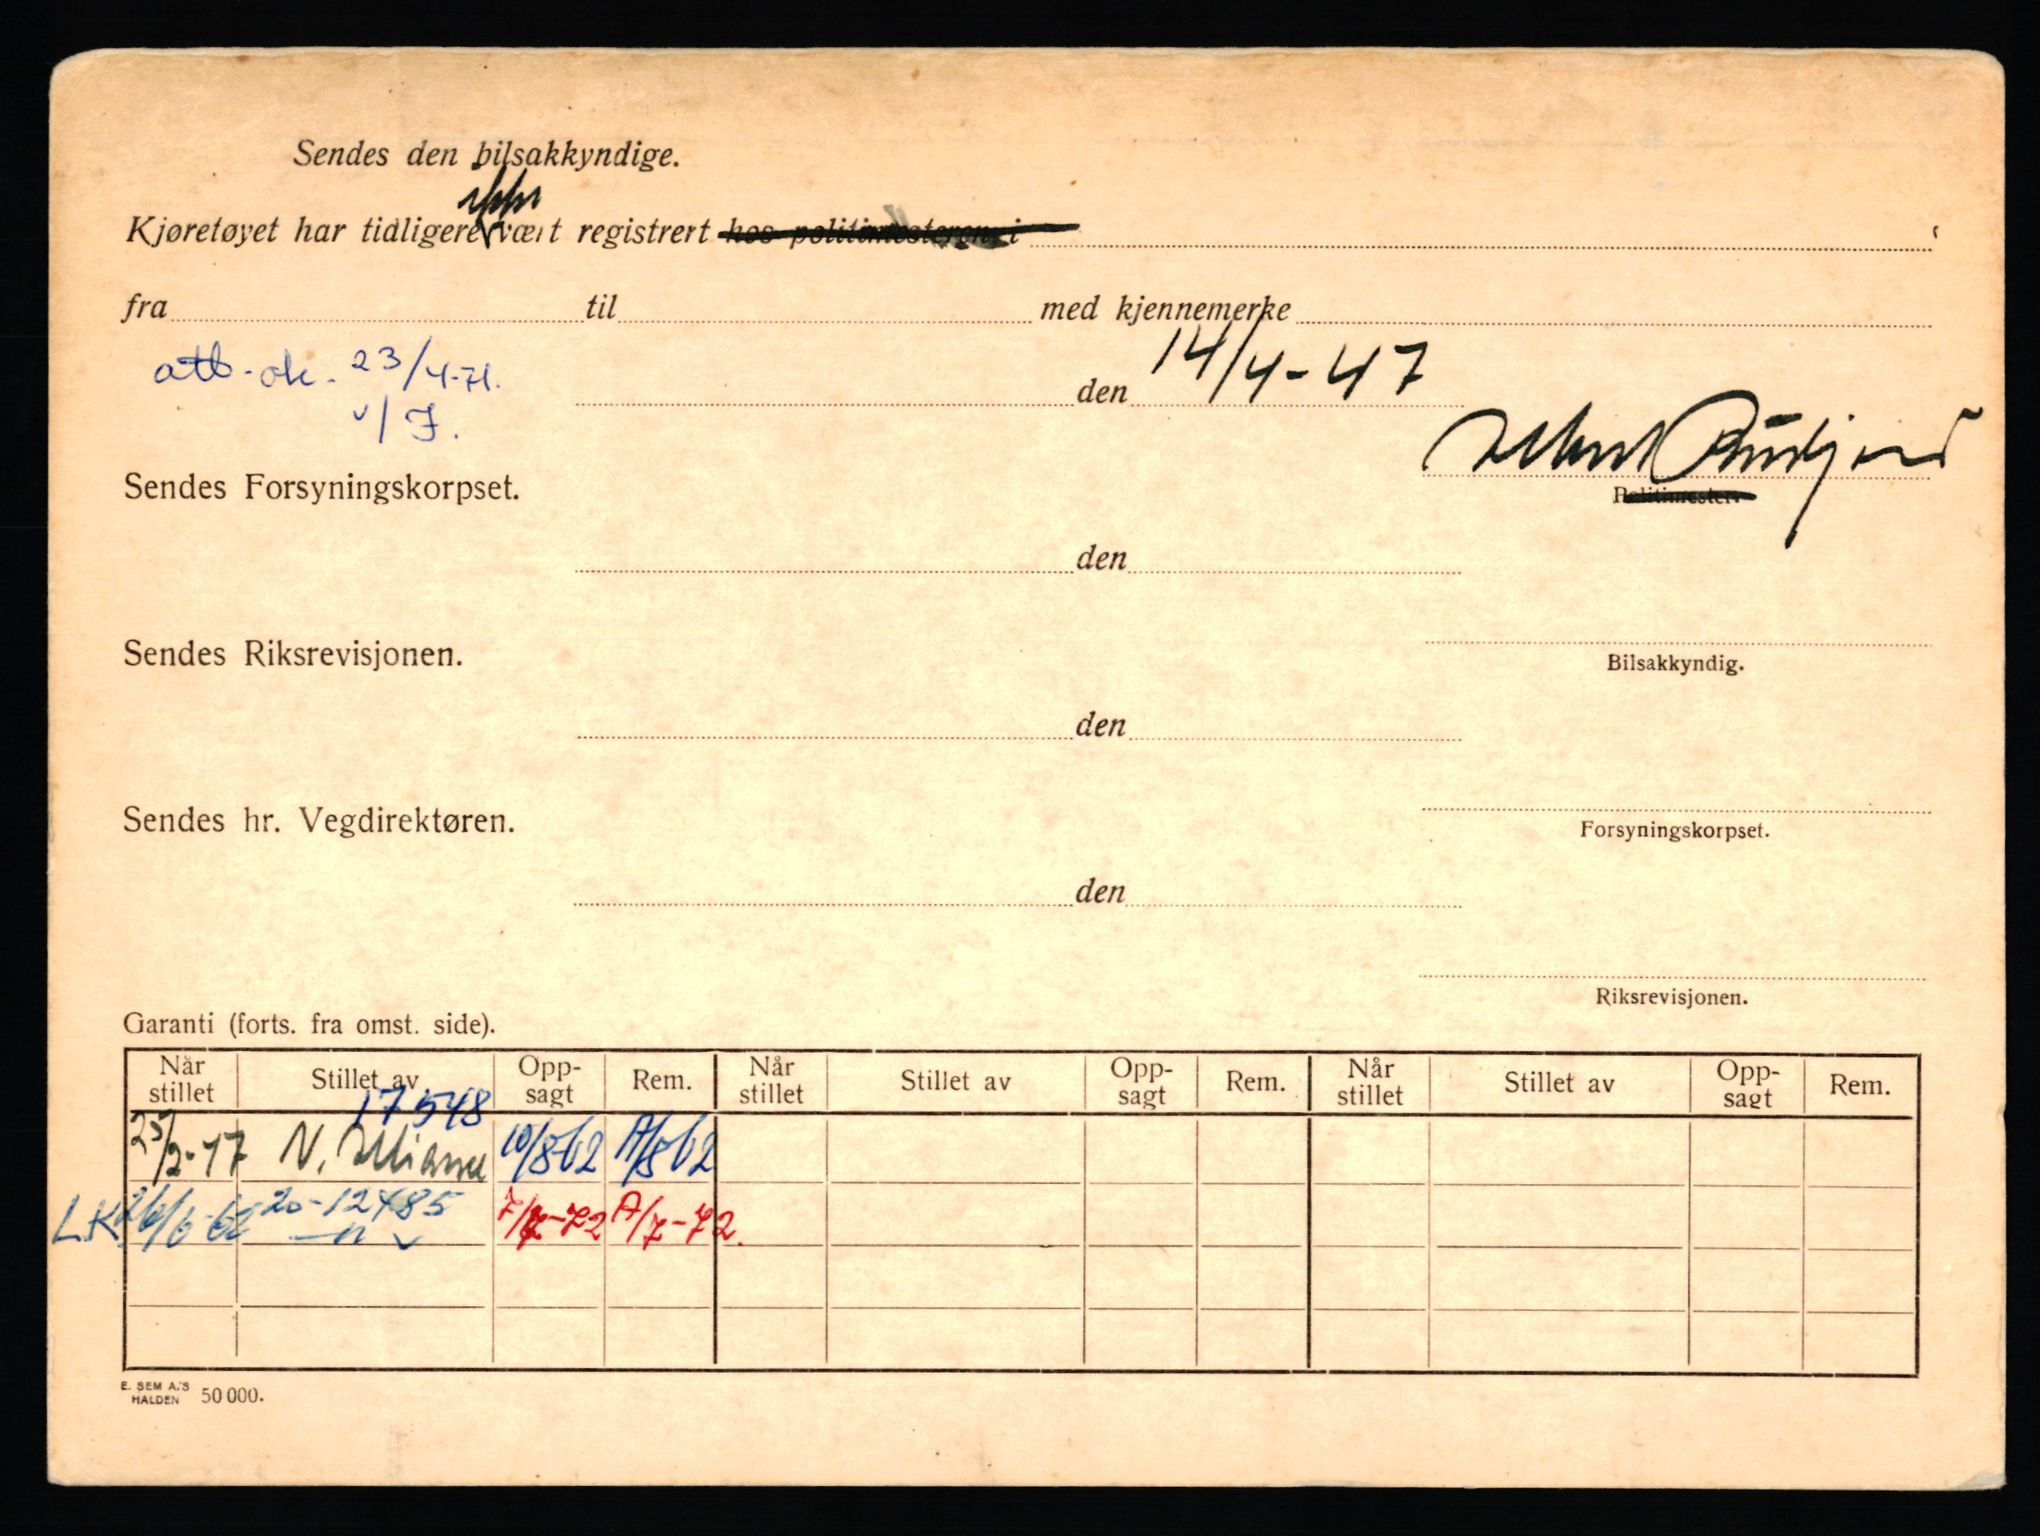 Sendes den bilsakkyndige.
ikke
Kjøretøyet har tidligere vært registrert hos politimesteren i
fra til med kjennemerke
att. ok. 23/4-71.
v/ J.
den 14/4-47
Politimester.
Sendes Forsyningskorpset.
den
Bilsakkyndig.
Sendes Riksrevisjonen.
den
Forsyningskorpset.
Sendes hr. Vegdirektøren.
den
Riksrevisjonen.
Garanti (forts. fra omst. side).
Når stillet Stillet av Opp-sagt Rem. Når stillet Stillet av Opp-sagt Rem. Når stillet Stillet av Opp-sagt Rem.
17548
N. Allianse 10/8-62 A/8 62
L.K. 26/6-62 20-12485 7/7-72 A/7-72.
—"—
E. SEM A/S HALDEN 50 000.